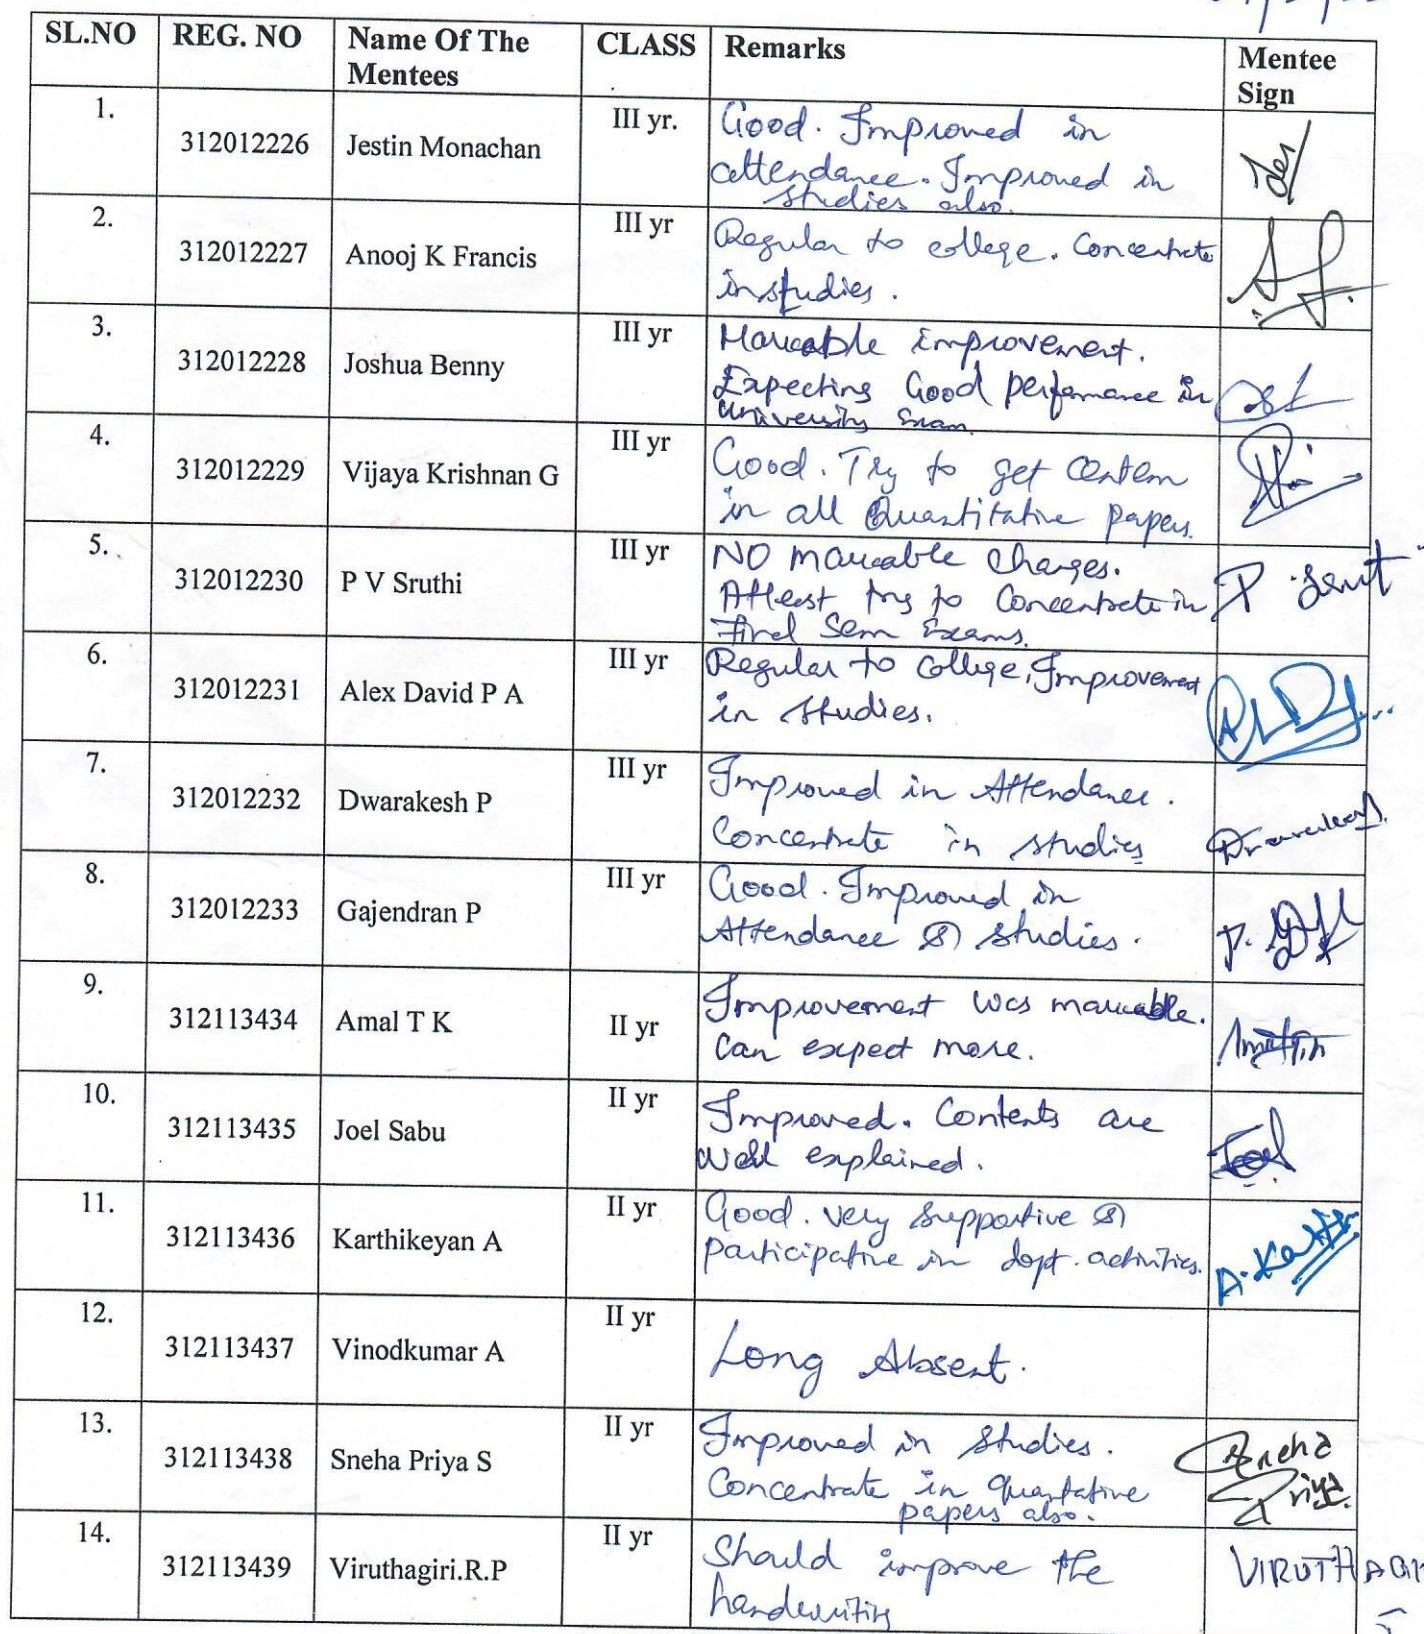 SL.NO REG. NO Name Of The Mentees CLASS Remarks Mentee Sign
1. 312012226 Jestin Monachan III yr. Good. Improved in
attendance. Improved in
studies also.
2. 312012227 Anooj K Francis III yr Regular to college. Concentrate
in studies.
3. 312012228 Joshua Benny III yr Markable improvement.
Expecting Good perfomance in
university Exam.
4. 312012229 Vijaya Krishnan G III yr Good. Try to get Centem
in all Quantitative papers.
5. 312012230 P V Sruthi III yr NO markable changes.
Atleast try to Concentrate in
Final Sem Exams.
6. 312012231 Alex David P A III yr Regular to college, Improvement
in studies.
7. 312012232 Dwarakesh P III yr Improved in Attendance.
Concentrate in studies
8. 312012233 Gajendran P III yr Good. Improved in
Attendance & studies.
9. 312113434 Amal T K II yr Improvement was markable.
Can expect more.
10. 312113435 Joel Sabu II yr Improved. Contents are
well explained.
Joel
11. 312113436 Karthikeyan A II yr Good. Very supportive &
participative in dept. activities.
12. 312113437 Vinodkumar A II yr Long Absent.
13. 312113438 Sneha Priya S II yr Improved in studies.
Concentrate in quantative
papers also.
Sneha
Priya
14. 312113439 Viruthagiri.R.P II yr Should improve the
handwriting
VIRUTHAGI